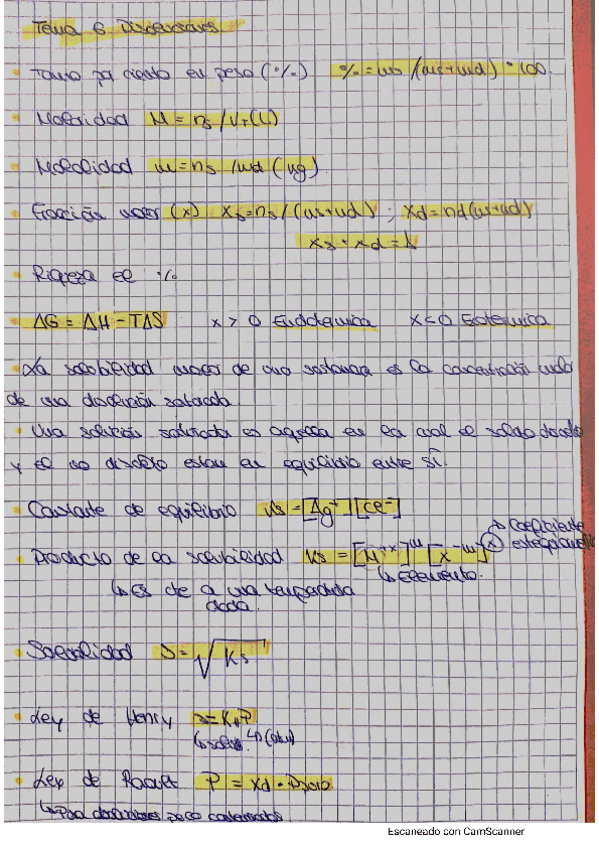 Tema 6 Disoluciones
• Tanto por ciento en peso (%) % = ms/(ms+md) • 100.
• Molaridad M = ns/VT(L)
• Molalidad m = ns/md (kg)
• Fracción molar (x) Xs = ns/(ns+nd) ; Xd = nd(ns+nd)
Xs + Xd = 1
• Riqueza el %
• ΔG = ΔH - TΔS x > 0 Endotermica x < 0 Exotermica
• La solubilidad molar de una sustancia es la concentración molar
de una disolución saturada.
• Una solución saturada es aquella en la cual el soluto disuelto
y el no disuelto estan en equilibrio entre sí.
• Constante de equilibrio Ks = [Ag+][Cl-]
↳ Coeficiente
estequiometrico
• Producto de la solubilidad Ks = [M+x]m [X-m]x
↳ Elemento.
↳ Es de a una temperatura
dada.
• Solubilidad S = √Ks
• Ley de Henry s = KH P
↳ solub. ↳ (atm)
• Ley de Raoult P = Xd • P
↳ Para disoluciones poco concentradas
Escaneado con CamScanner